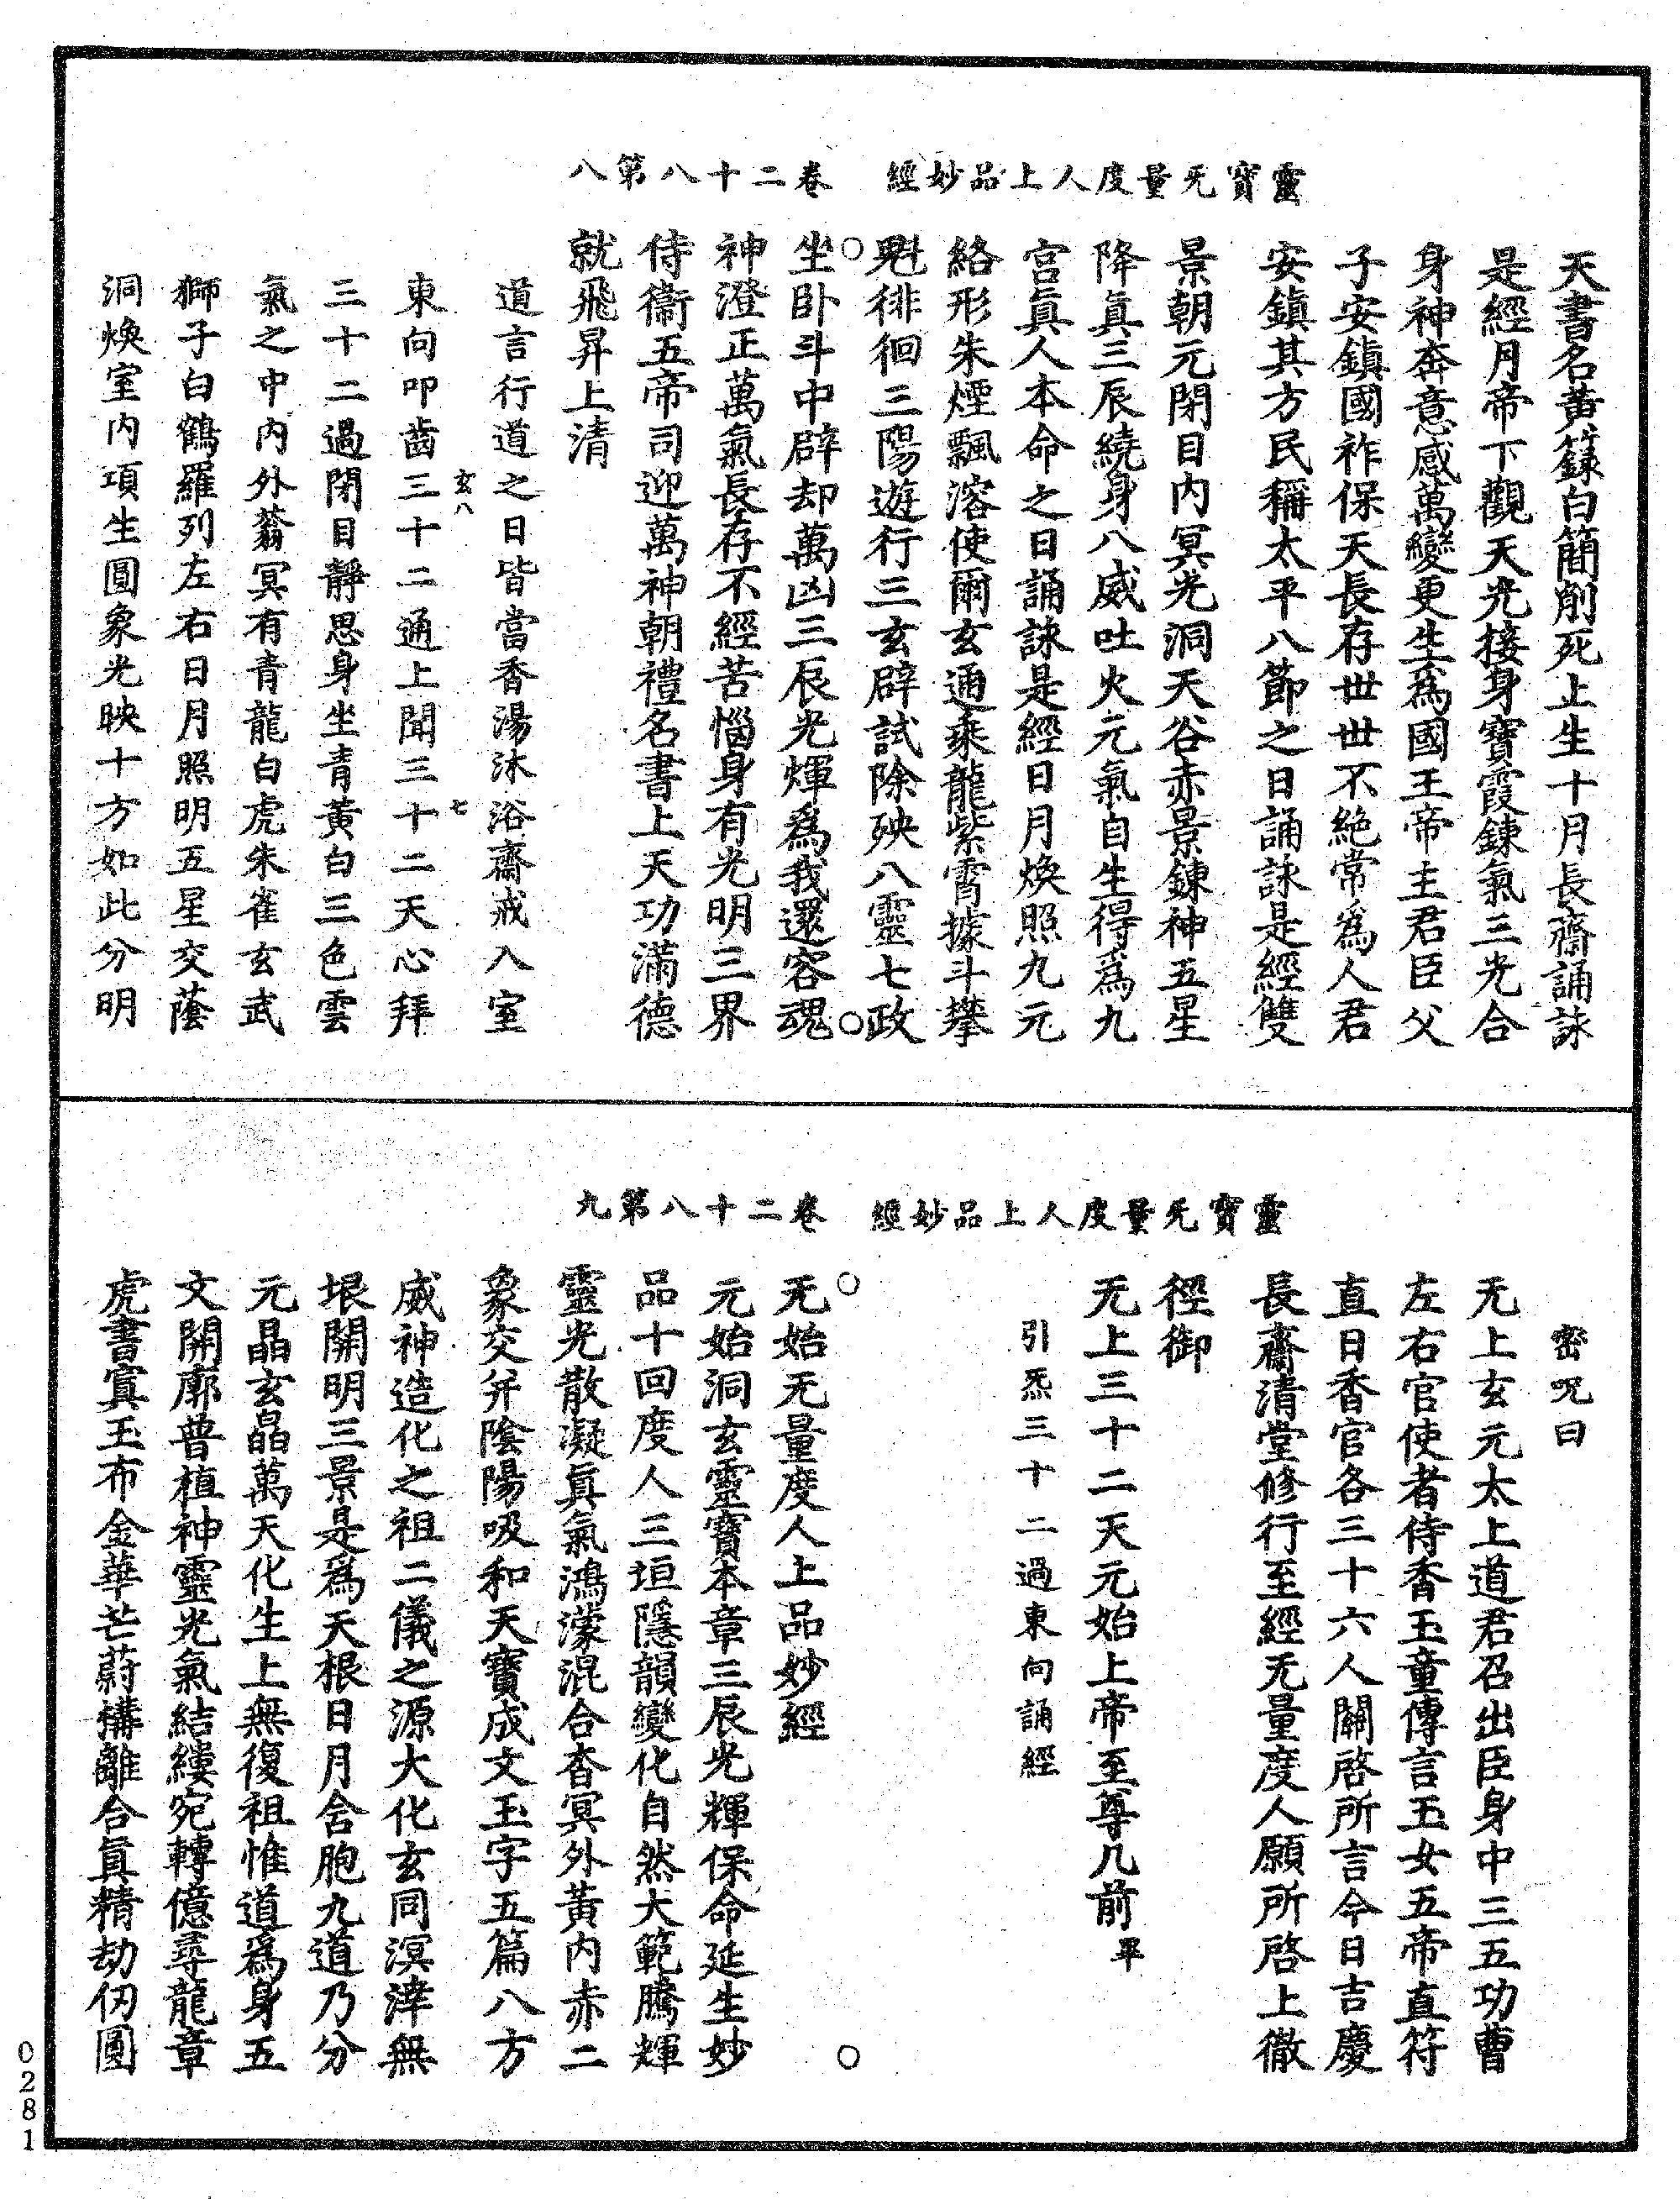 靈寶无量度人上品妙經　卷二十八第八
天書名黃籙白簡削死上生十月長齋誦詠
是經月帝下觀天光接身寶霞鍊氣三光合
身神奔意感萬變更生為國王帝主君臣父
子安鎮國祚保天長存世世不絕常為人君
安鎮其方民稱太平八節之日誦詠是經雙
景朝元閉目內冥光洞天谷赤景鍊神五星
降真三辰繞身八威吐火元氣自生得為九
宮真人本命之日誦詠是經日月煥照九元
絡形朱煙飄溶使爾玄通乘龍紫霄據斗攀
魁徘徊三陽遊行三玄辟試除殃八靈七政
坐臥斗中辟却萬凶三辰光煇為我還容魂
神澄正萬氣長存不經苦惱身有光明三界
侍衞五帝司迎萬神朝禮名書上天功滿德
就飛昇上清
道言行道之日皆當香湯沐浴齋戒入室
玄八　七
東向叩齒三十二通上聞三十二天心拜
三十二過閉目靜思身坐青黃白三色雲
氣之中內外蓊冥有青龍白虎朱雀玄武
獅子白鶴羅列左右日月照明五星交蔭
洞煥室內項生圓象光映十方如此分明
靈寶无量度人上品妙經　卷二十八第九
密呪曰
无上玄元太上道君召出臣身中三五功曹
左右官使者侍香玉童傳言玉女五帝直符
直日香官各三十六人關啓所言今日吉慶
長齋清堂修行至經无量度人願所啓上徹
徑御
无上三十二天元始上帝至尊几前畢
引炁三十二過東向誦經
无始无量度人上品妙經
元始洞玄靈寶本章三辰光輝保命延生妙
品十回度人三垣隱韻變化自然大範騰輝
靈光散凝真氣鴻濛混合杳冥外黃內赤二
象交并陰陽吸和天寶成文玉字五篇八方
威神造化之祖二儀之源大化玄同溟涬無
垠開明三景是為天根日月含胞九道乃分
元晶玄皛萬天化生上無復祖惟道為身五
文開廓普植神靈光氣結縷宛轉億尋龍章
虎書寘玉布金華芒蔚構離合真精劫仞圓
0281